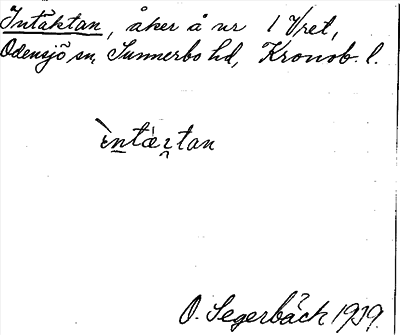 Intäktan, åker å nr 1 Vret,
Odensjö sn, Sunnerbo hd, Kronob. l.
O. Segerbäck 1939.